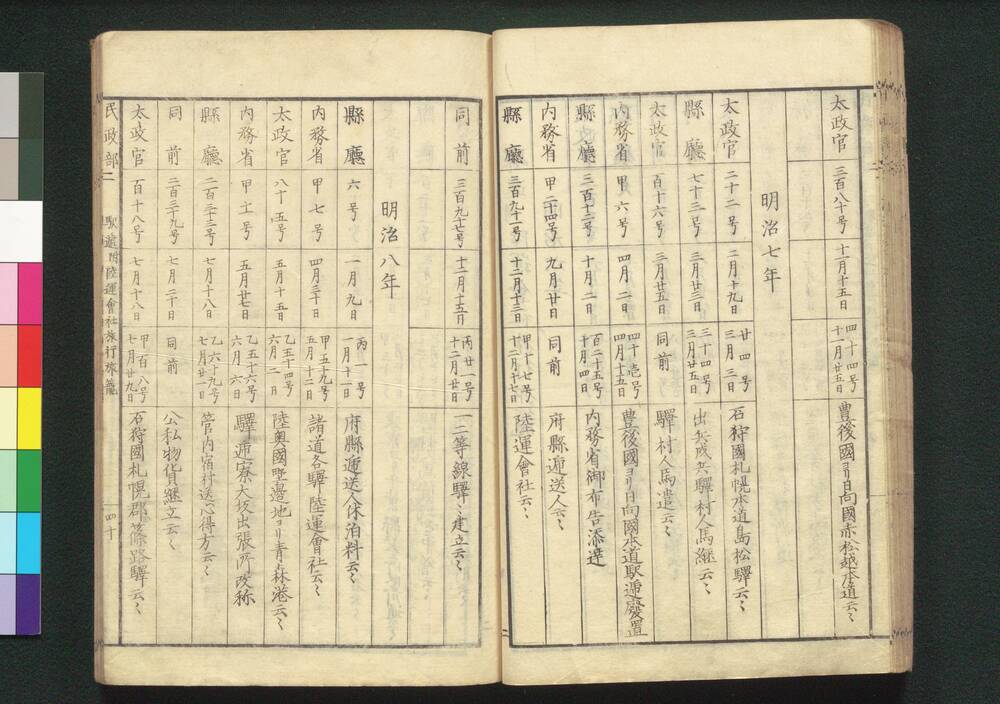 太政官 三百八十号 十一月十五日 四十四号 十一月廿五日 豊後國ヨリ日向國赤松越本道云々
明治七年
太政官 二十二号 二月十九日 廿四号 三月三日 石狩國札幌本道島松驛云々
縣廳 七十三号 三月廿三日 三十四号 三月廿五日 出兵成共驛村人馬継云々
太政官 百十六号 三月廿五日 同前 驛村人馬遣云々
内務省 甲六号 四月二日 四十壱号 四月十五日 豊後國ヨリ日向國本道駅逓廢置
縣廳 三百十二号 十月二日 百二十五号 十月四日 内務省御布告添達
内務省 甲二十四号 九月廿日 同前 府縣逓送人云々
縣廳 三百九十一号 十二月十三日 甲十七号 十二月十七日 陸運會社云々
同前 三百九十七号 十二月十五日 丙廿一号 十二月廿日 一二等線驛々建立云々
明治八年
縣廳 六号 一月九日 丙一号 一月十一日 府縣逓送人休泊料云々
内務省 甲七号 四月三十日 甲五十九号 五月十二日 諸道各驛陸運會社云々
太政官 八十五号 五月十五日 乙五十四号 六月二日 陸奥國野邊地ヨリ青森港云々
内務省 甲十一号 五月廿七日 乙五十六号 六月六日 驛逓寮大坂出張所改称
縣廳 二百三十三号 七月十八日 乙六十九号 七月廿一日 管内宿村送心得方云々
同前 二百三十九号 七月二十日 同前 公私物貨継立云々
太政官 百十八号 七月十八日 甲百八号 七月廿九日 石狩國札幌郡篠路驛云々
民政部二 駅逓附陸運會社旅行旅籠 四十